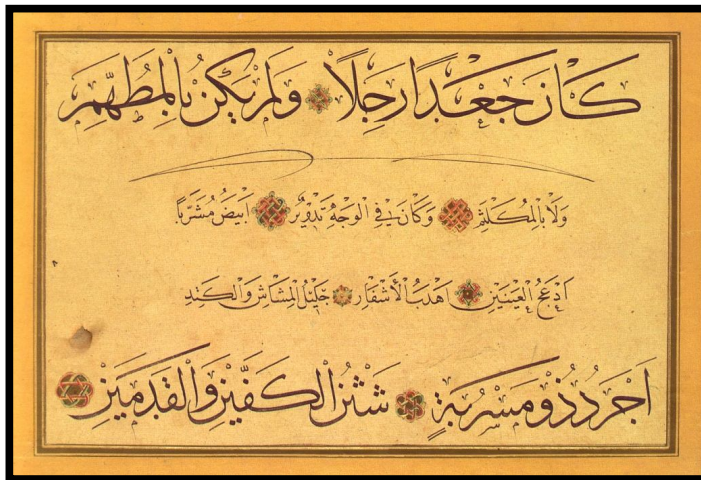 كَانَ جَعْدًا رَجِلًا وَلَمْ يَكُنْ بِالْمُطَهَّمِ
وَلَا بِالْمُكَلْثَمِ وَكَانَ فِي الْوَجْهِ تَدْوِيرٌ اَبْيَضُ مُشَرَّبًا
اَدْعَجُ الْعَيْنَيْنِ اَهْدَبُ الْاَشْفَارِ جَلِيْلُ الْمُشَاشِ وَالْكَتِدِ
اَجْرَدُ ذُو مَسْرُبَةٍ شَثْنُ الْكَفَّيْنِ وَالْقَدَمَيْنِ